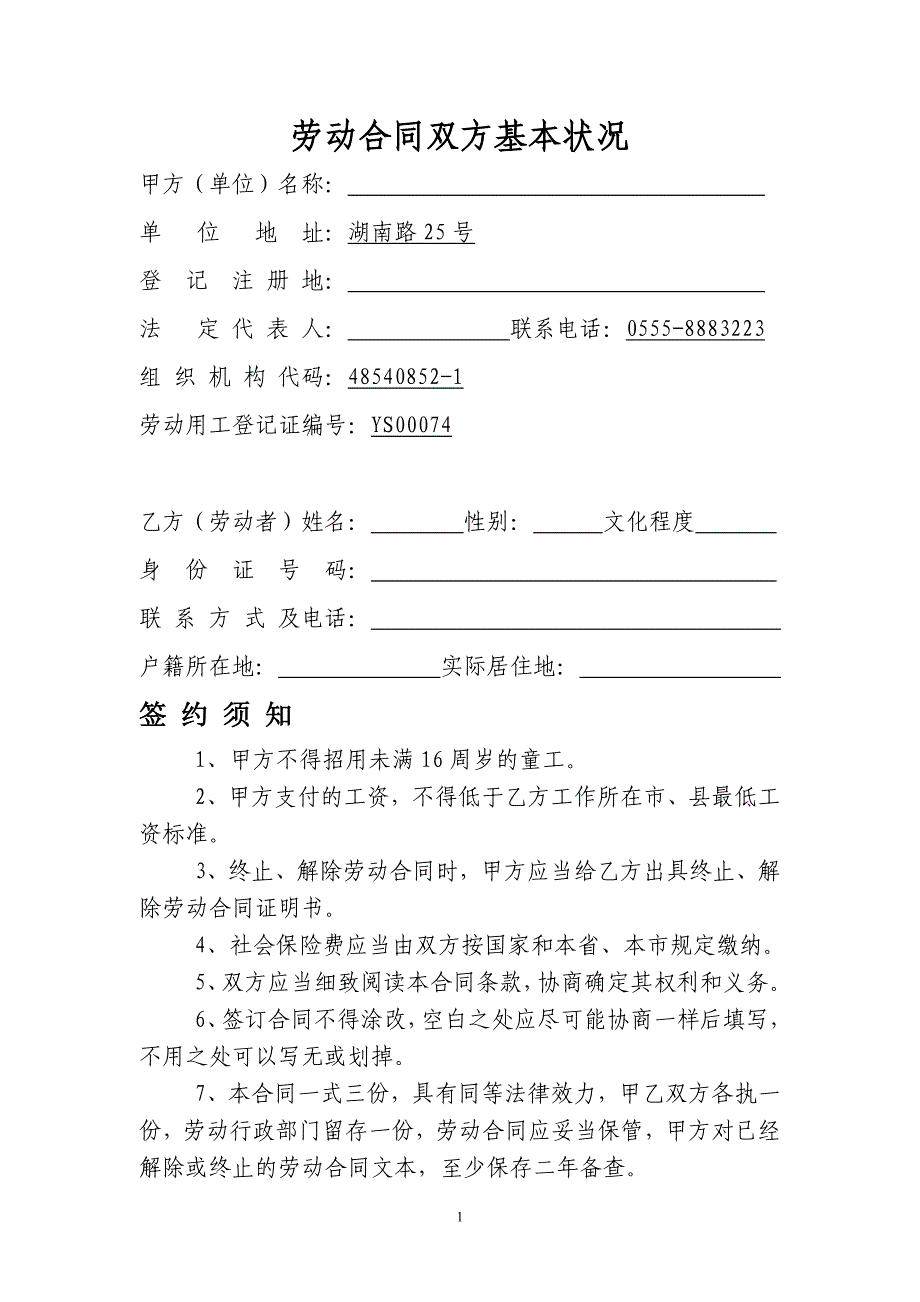 劳动合同双方基本状况
甲方（单位）名称：
单 位 地 址：湖南路25号
登 记 注 册 地：
法 定 代 表 人： 联系电话：0555-8883223
组 织 机 构 代码：48540852-1
劳动用工登记证编号：YS00074
乙方（劳动者）姓名： 性别： 文化程度
身 份 证 号 码：
联 系 方 式 及电话：
户籍所在地： 实际居住地：
签 约 须 知
1、甲方不得招用未满16周岁的童工。
2、甲方支付的工资，不得低于乙方工作所在市、县最低工
资标准。
3、终止、解除劳动合同时，甲方应当给乙方出具终止、解
除劳动合同证明书。
4、社会保险费应当由双方按国家和本省、本市规定缴纳。
5、双方应当细致阅读本合同条款，协商确定其权利和义务。
6、签订合同不得涂改，空白之处应尽可能协商一样后填写，
不用之处可以写无或划掉。
7、本合同一式三份，具有同等法律效力，甲乙双方各执一
份，劳动行政部门留存一份，劳动合同应妥当保管，甲方对已经
解除或终止的劳动合同文本，至少保存二年备查。
1